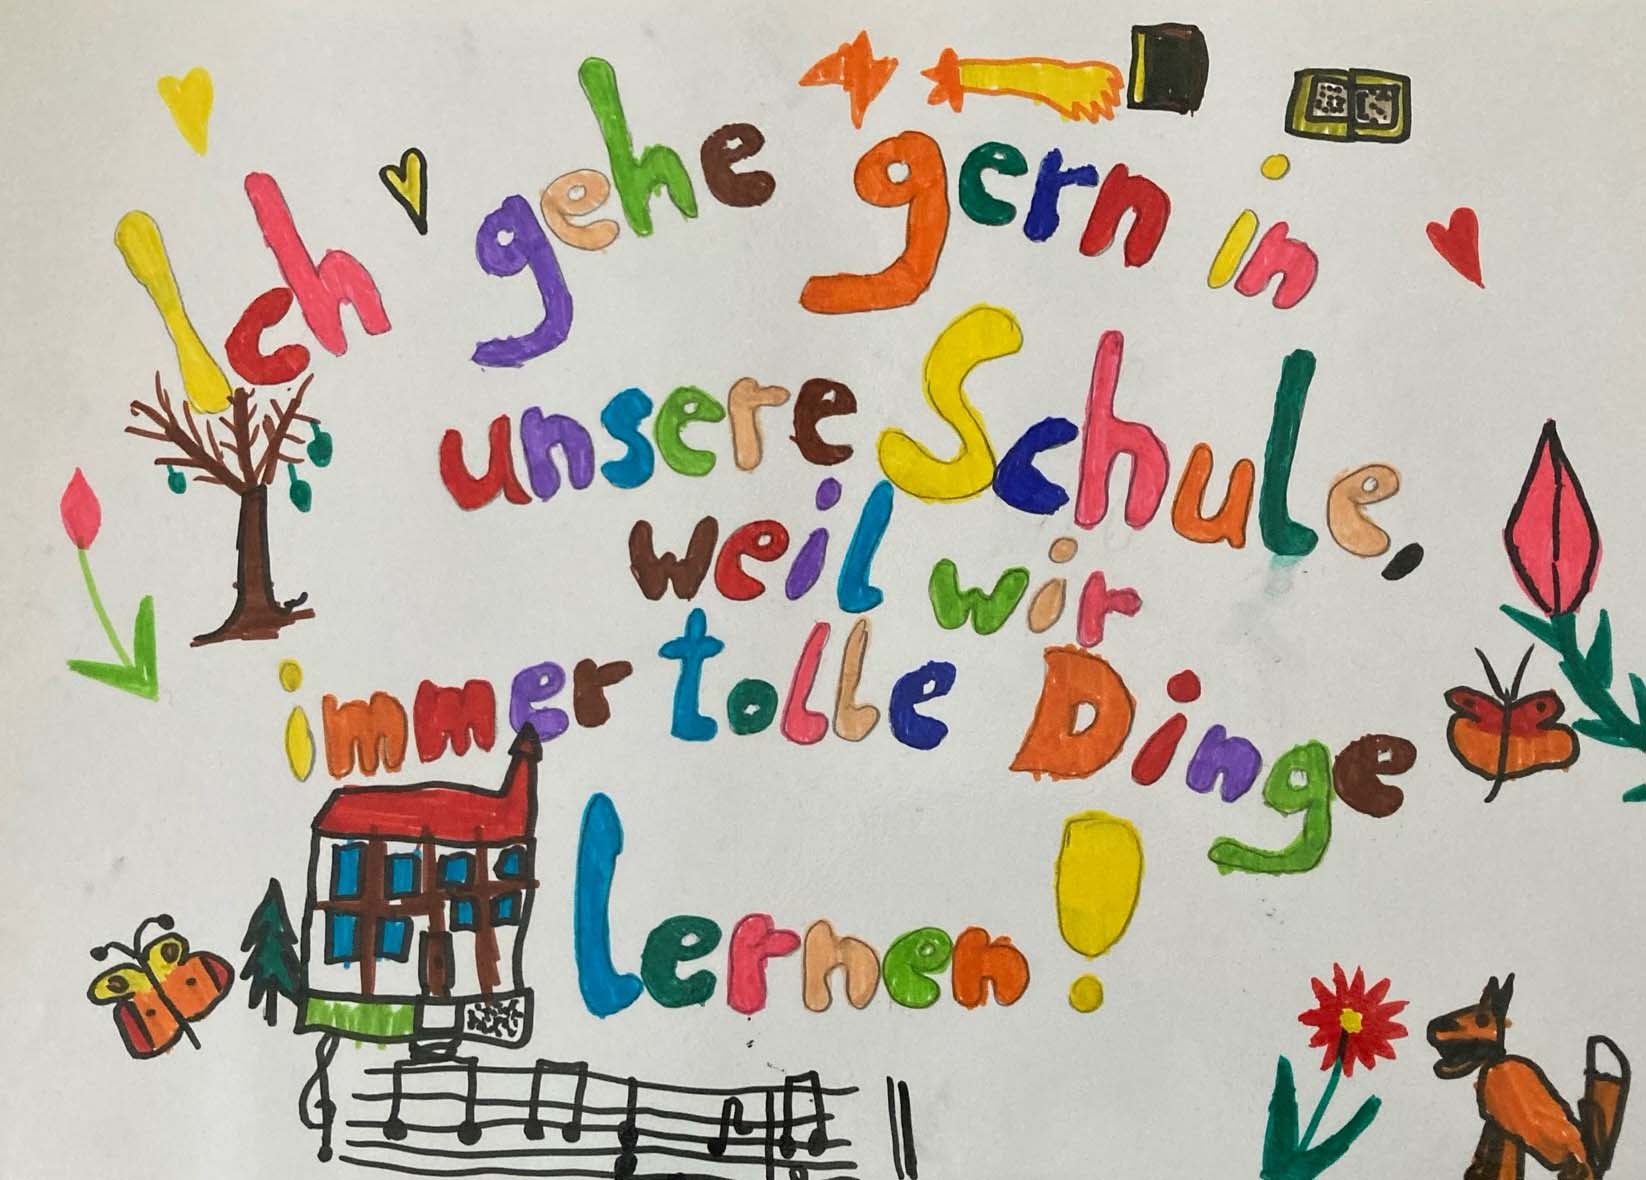 Ich gehe gern in
unsere Schule,
weil wir
immer tolle Dinge
lernen!